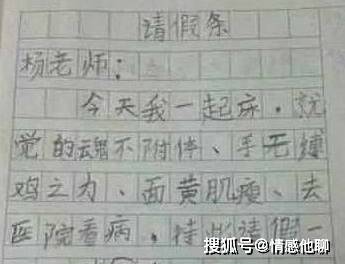 请假条
杨老师:
今天我一起床,就
觉的魂不附体、手无缚
鸡之力、面黄肌瘦、去
医院看病,特此请假一
搜狐号@情感他聊